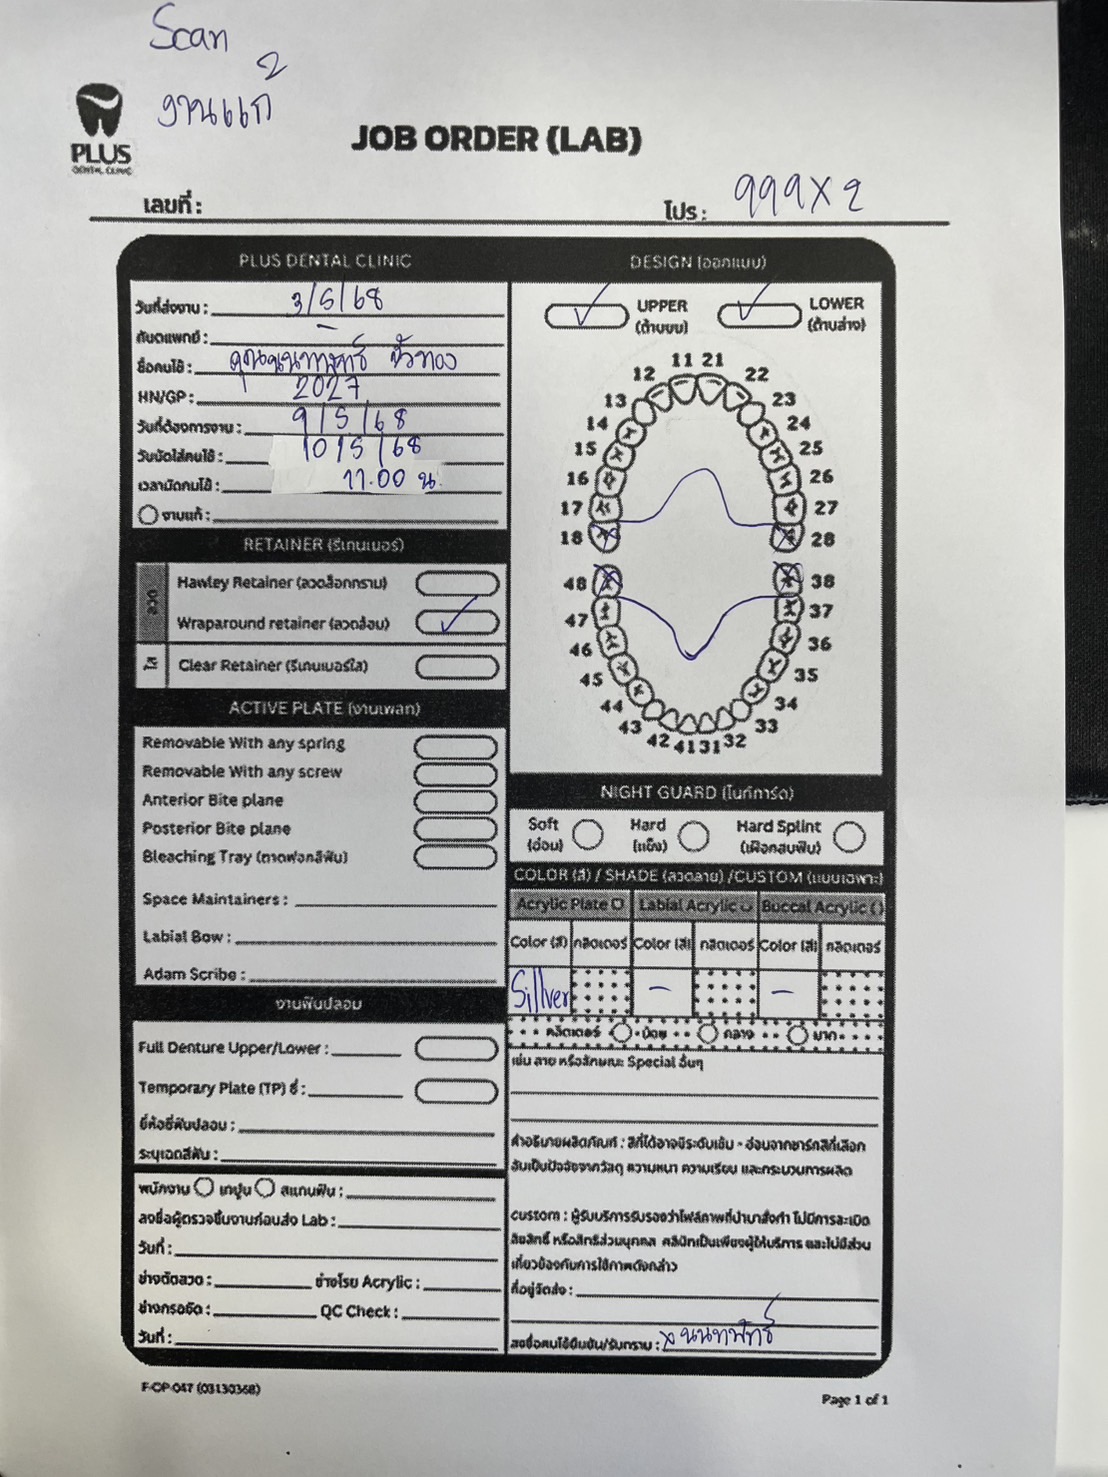 Scan
งานแก้
2
PLUS
DENTAL CLINIC
JOB ORDER (LAB)
เลขที่ :
โปร : 999X2
PLUS DENTAL CLINIC
วันที่ส่งงาน : 3/5/68
ทันตแพทย์ : -
ชื่อคนไข้ :
HN/GP : 2027
วันที่ต้องการงาน : 9/5/68
วันนัดใส่คนไข้ : 10/5/68
เวลานัดคนไข้ : 11.00 น.
งานแก้ :
RETAINER (รีเทนเนอร์)
ลวด
Hawley Retainer (ลวดล็อกกราม)
Wraparound retainer (ลวดล้อม)
ใส
Clear Retainer (รีเทนเนอร์ใส)
ACTIVE PLATE (งานเพลท)
Removable With any spring
Removable With any screw
Anterior Bite plane
Posterior Bite plane
Bleaching Tray (ถาดฟอกสีฟัน)
Space Maintainers :
Labial Bow :
Adam Scribe :
งานฟันปลอม
Full Denture Upper/Lower :
Temporary Plate (TP) ซี่ :
ยี่ห้อซี่ฟันปลอม :
ระบุเฉดสีฟัน :
พนักงาน เทปูน สแกนฟัน :
ลงชื่อผู้ตรวจชิ้นงานก่อนส่ง Lab :
วันที่ :
ช่างดัดลวด : ช่างโรย Acrylic :
ช่างกรอขัด : QC Check :
วันที่ :
DESIGN (ออกแบบ)
UPPER
(ด้านบน)
LOWER
(ด้านล่าง)
11 21
12 22
13 23
14 24
15 25
16 26
17 27
18 28
48 38
47 37
46 36
45 35
44 34
43 33
42 41 31 32
NIGHT GUARD (ไนท์การ์ด)
Soft
(อ่อน)
Hard
(แข็ง)
Hard Splint
(เฝือกสบฟัน)
COLOR (สี) / SHADE (ลวดลาย) /CUSTOM (แบบเฉพาะ)
Acrylic Plate Labial Acrylic Buccal Acrylic
Color (สี) กลิตเตอร์ Color (สี) กลิตเตอร์ Color (สี) กลิตเตอร์
Sillver - -
กลิตเตอร์ น้อย กลาง มาก
เช่น ลาย หรือลักษณะ Special อื่นๆ
คำอธิบายผลิตภัณฑ์ : สีที่ได้อาจมีระดับเข้ม - อ่อนจากชาร์ทสีที่เลือก
อันเป็นปัจจัยจากวัสดุ ความหนา ความเรียบ และกระบวนการผลิต
custom : ผู้รับบริการรับรองว่าไฟล์ภาพที่นำมาสั่งทำ ไม่มีการละเมิด
ลิขสิทธิ์ หรือสิทธิส่วนบุคคล คลินิกเป็นเพียงผู้ให้บริการ และไม่มีส่วน
เกี่ยวข้องกับการใช้ภาพดังกล่าว
ที่อยู่จัดส่ง :
ลงชื่อคนไข้ยืนยัน/รับทราบ : x นนทพัทธ์
F-OP-047 (03130368)
Page 1 of 1